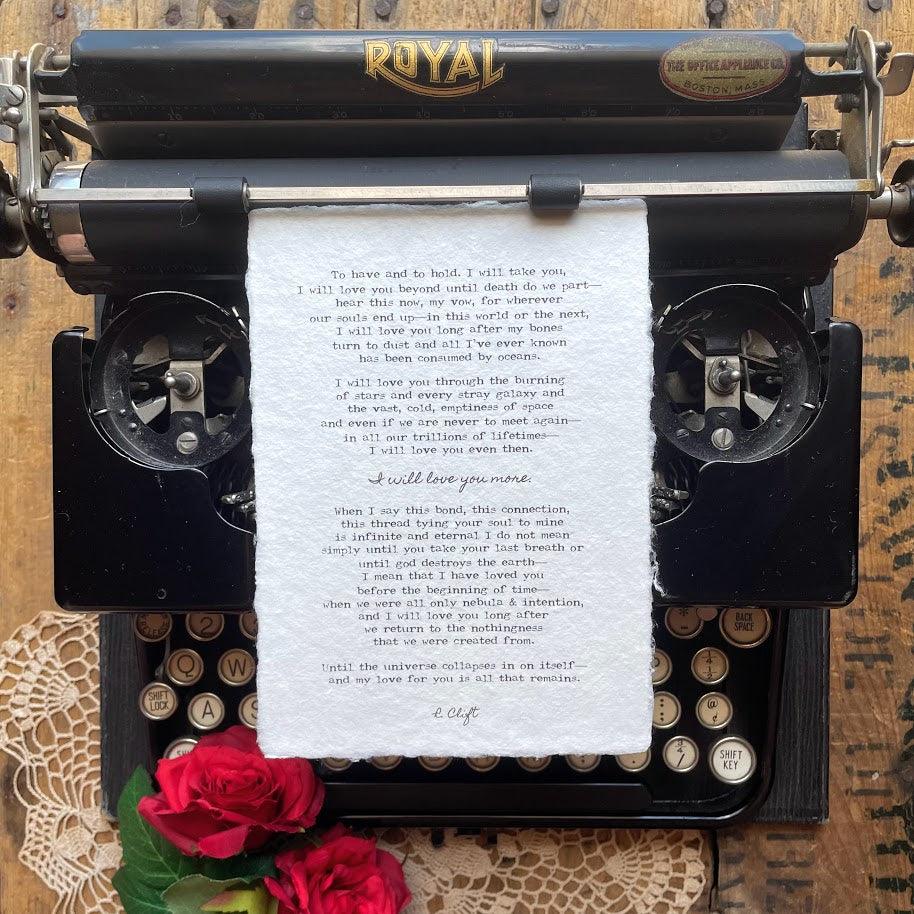 ROYAL
THE OFFICE APPLIANCE CO.
BOSTON, MASS
To have and to hold. I will take you,
I will love you beyond until death do we part—
hear this now, my vow, for wherever
our souls end up—in this world or the next,
I will love you long after my bones
turn to dust and all I've ever known
has been consumed by oceans.
I will love you through the burning
of stars and every stray galaxy and
the vast, cold, emptiness of space
and even if we are never to meet again—
in all our trillions of lifetimes—
I will love you even then.
I will love you more.
When I say this bond, this connection,
this thread tying your soul to mine
is infinite and eternal I do not mean
simply until you take your last breath or
until god destroys the earth—
I mean that I have loved you
before the beginning of time—
when we were all only nebula & intention,
and I will love you long after
we return to the nothingness
that we were created from.
Until the universe collapses in on itself—
and my love for you is all that remains.
R. Clift
2
BACK SPACE
Q W
SHIFT LOCK
A S
@ ¢
SHIFT KEY